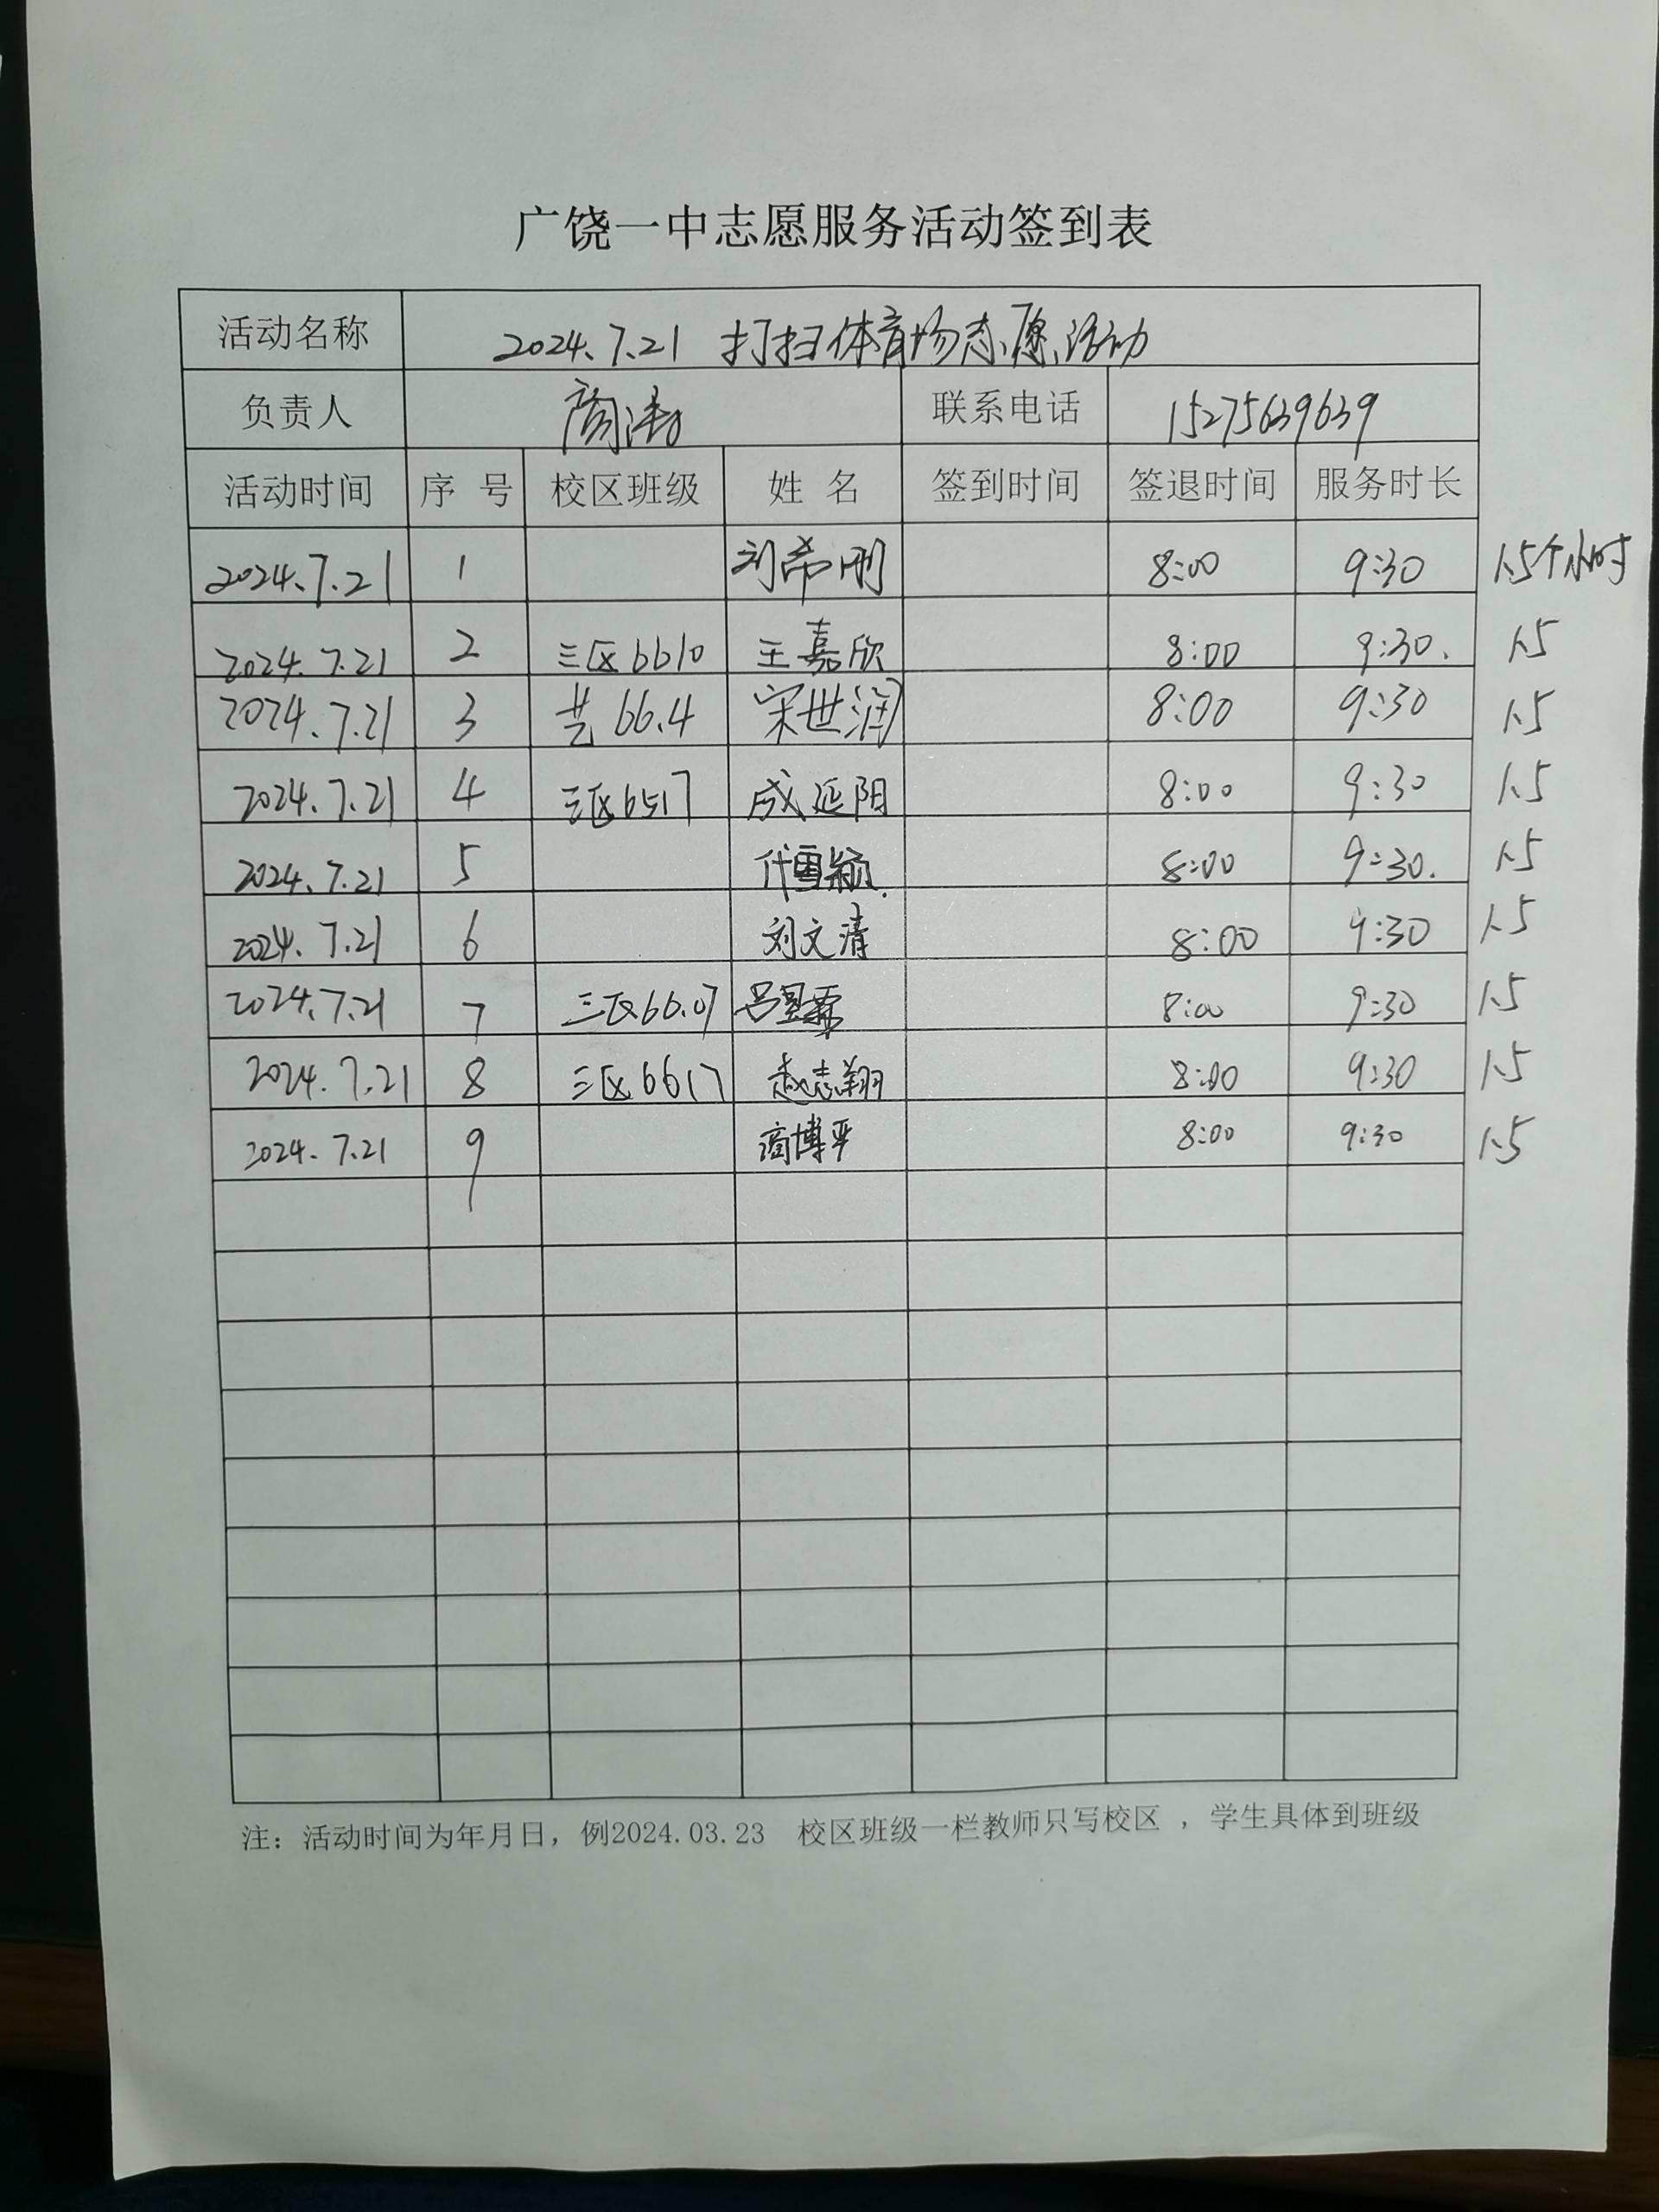 广饶一中志愿服务活动签到表
活动名称 2024.7.21 打扫体育场志愿活动
负责人 商涛 联系电话 15275639639
活动时间 序 号 校区班级 姓 名 签到时间 签退时间 服务时长
2024.7.21 1 刘希刚 8:00 9:30 1.5个小时
2024.7.21 2 三区6610 王嘉欣 8:00 9:30. 1.5
2024.7.21 3 艺 66.4 宋世润 8:00 9:30 1.5
2024.7.21 4 三区6517 成延阳 8:00 9:30 1.5
2024.7.21 5 代雪颖. 8:00 9:30. 1.5
2024.7.21 6 刘文清 8:00 9:30 1.5
2024.7.21 7 三区66.07 吕昱霖 8:00 9:30 1.5
2024.7.21 8 三区6617 赵志翔 8:00 9:30 1.5
2024.7.21 9 商博平 8:00 9:30 1.5
注：活动时间为年月日，例2024.03.23 校区班级一栏教师只写校区 ，学生具体到班级